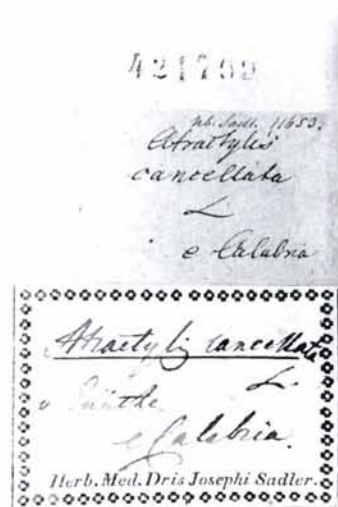 421709
hb. Sadl. 11653.
Atractylis
cancellata
L
e Calabria
Atractylis cancellata
L.
e Calabria.
Herb. Med. Dris Josephi Sadler.